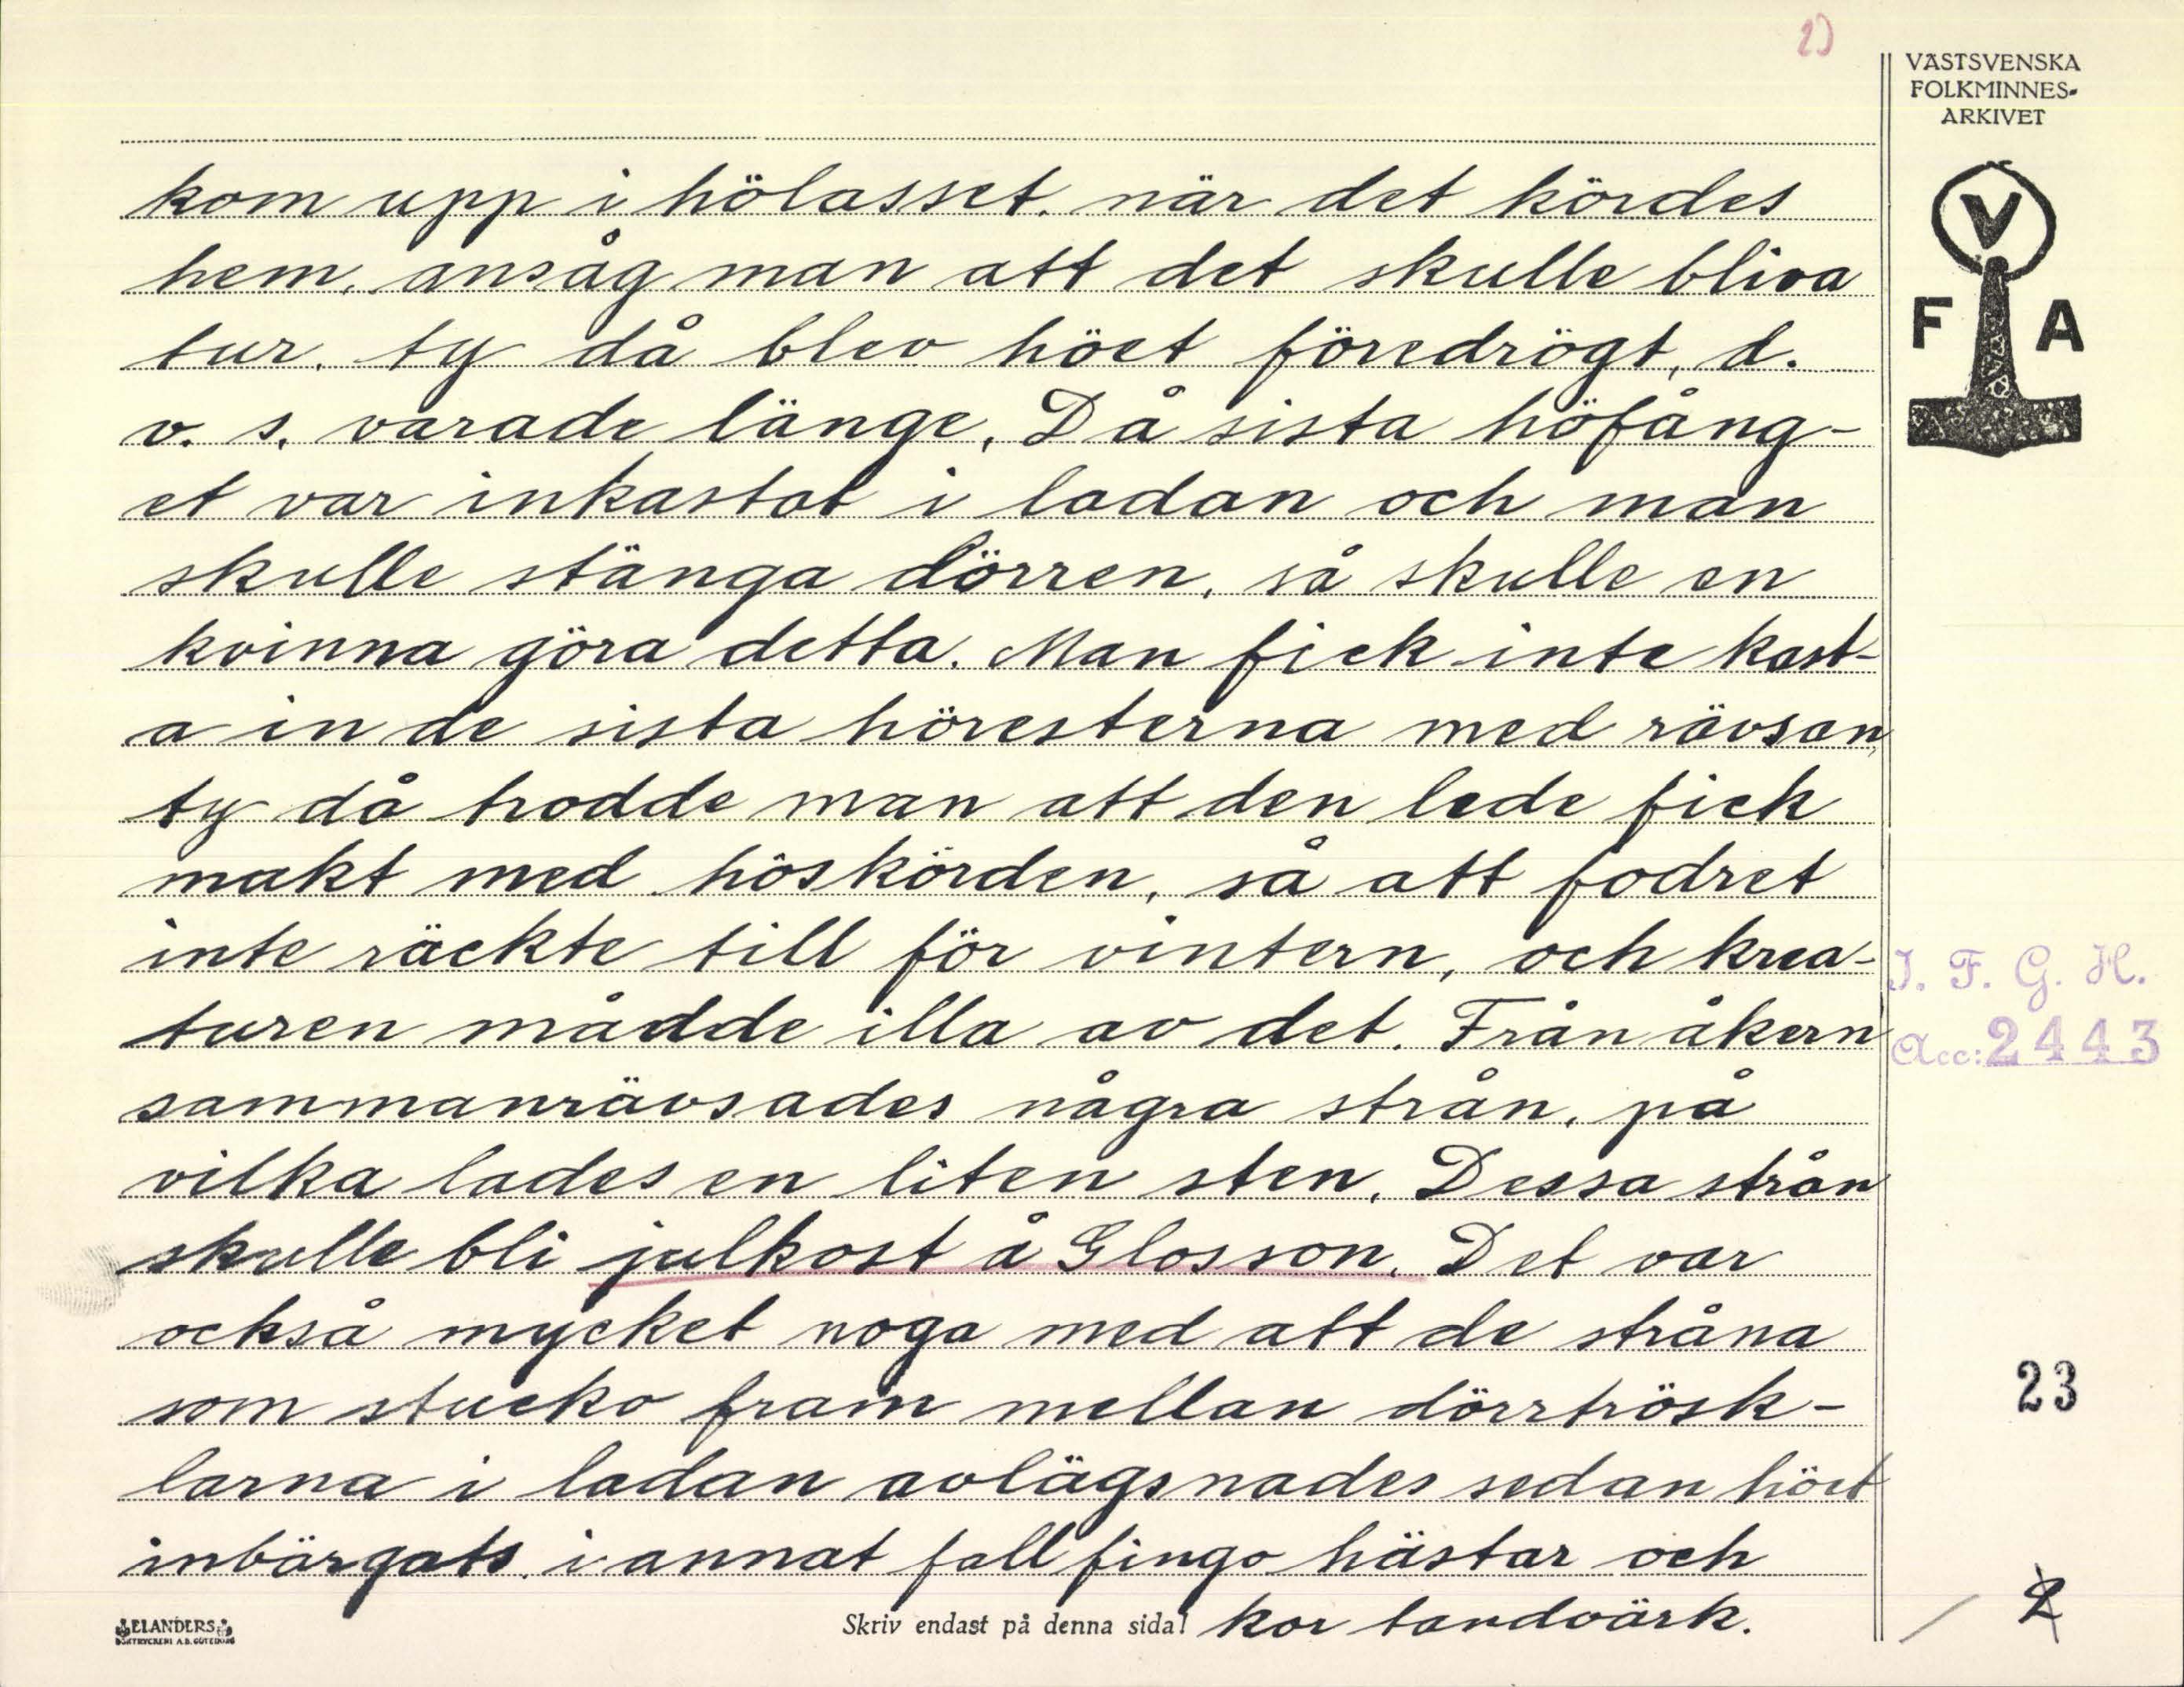 2)
VÄSTSVENSKA
FOLKMINNES-
ARKIVET
V
F A
kom upp i hölasset, när det kördes
hem, ansåg man att det skulle bliva
tur, ty då blev höetföredrögt, d.
v. s. varade länge. Då sista höfång-
et var inkastat i ladan och man
skulle stänga dörren, så skulle en
kvinna göra detta. Man fick inte kast-
a in de sista höresterna med rävsan,
ty då trodde man att den lede fick
makt med höskörden, så att fodret
inte räckte till för vintern, och krea-
turen mådde illa av det. Från åkern
sammanrävsades några strån, på
vilka lades en liten sten. Dessa strån
skulle bli julkost å Glosson. Det var
också mycket noga med att de stråna
som stucko fram mellan dörrtrösk-
larna i ladan avlägsnades sedan höet
inbärgats, i annat fall fingo hästar och
kor tandvärk.
I. F. G. H.
Acc: 2443
23
2
ELANDERS
BOKTRYCKERI A.B. GÖTEBORG
Skriv endast på denna sida!